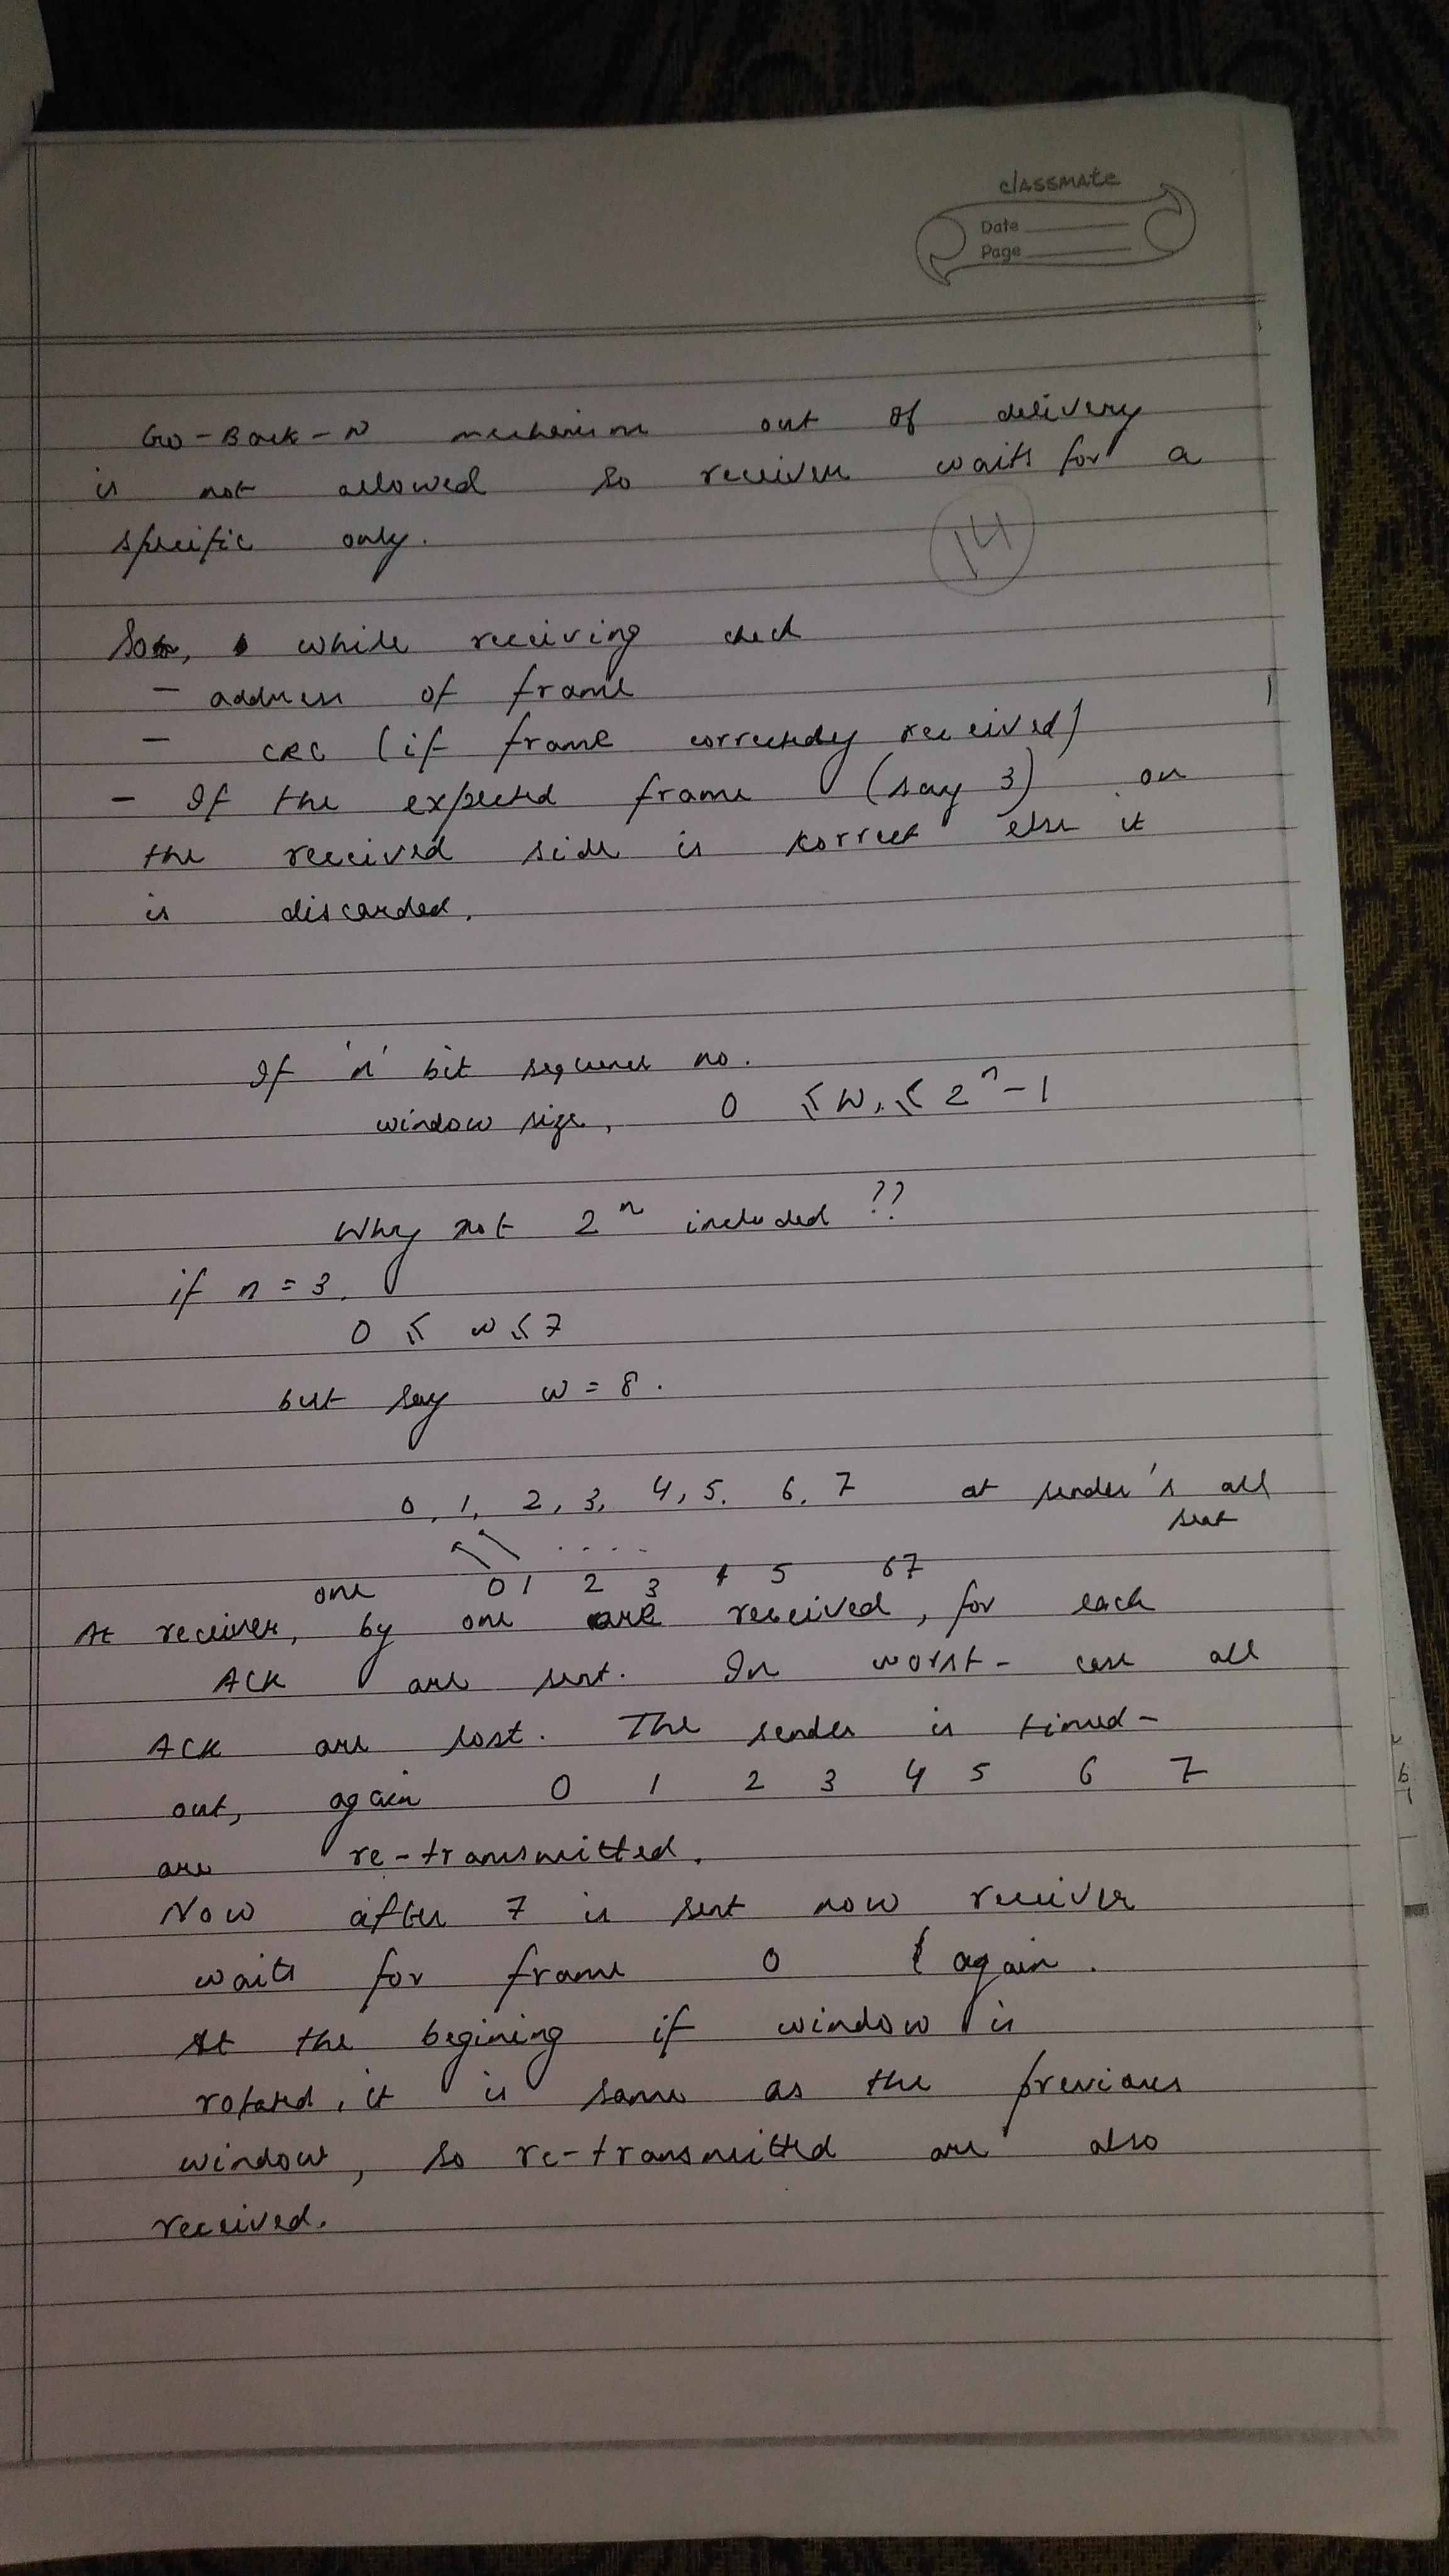 classmate
Date
Page
Go-Back-N mechanism out of delivery
is not allowed so receiver waits for a
specific only.
14
So, while receiving check
- address of frame
- CRC (if frame correctly received)
- If the expected frame (say 3) on
the received side is correct else it
is discarded.
If 'n' bit sequence no.
window size, 0 ≤ W ≤ 2ⁿ-1
Why not 2ⁿ included ??
if n = 3,
0 ≤ w ≤ 7
but say w = 8.
0, 1, 2, 3, 4, 5, 6, 7 at sender's all
sent
0 1 2 3 4 5 6 7
one
At receiver, by one are received, for each
ACK are sent. In worst- case all
ACK are lost. The sender is timed-
out, again 0 1 2 3 4 5 6 7
are re-transmitted.
Now after 7 is sent now receiver
waits for frame 0 again.
At the begining if window is
rotated, it is same as the previous
window, so re-transmitted are also
received.